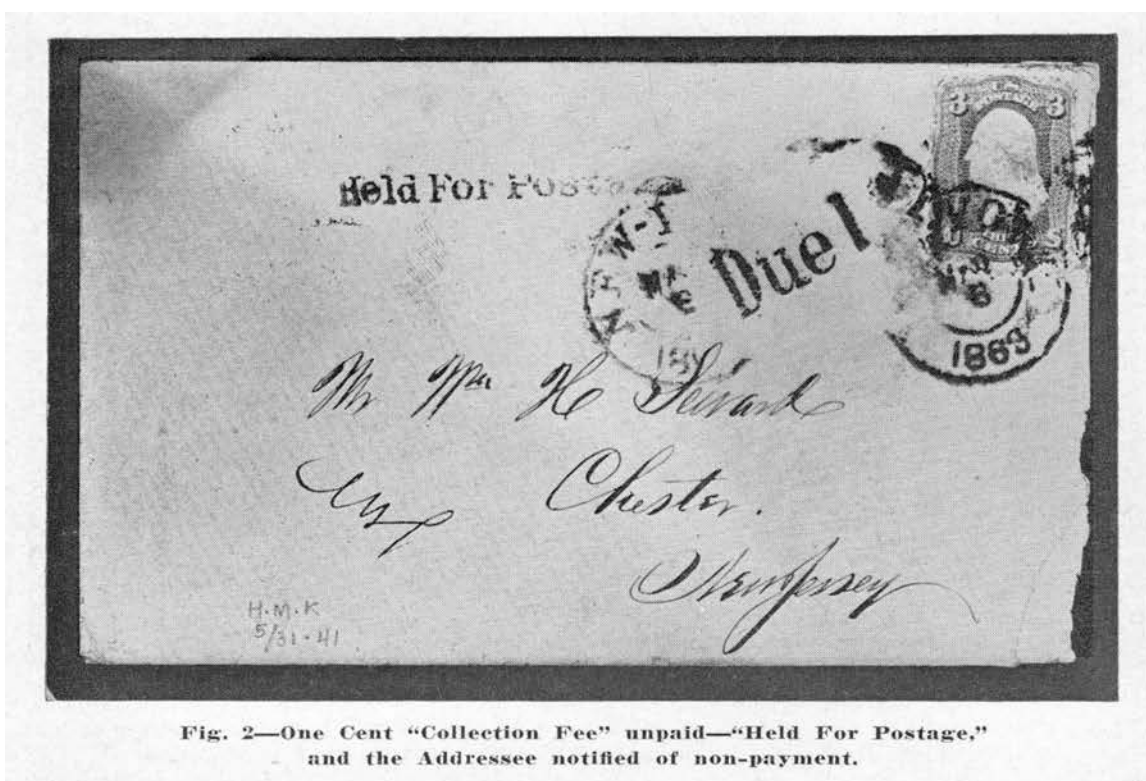 3 3
Held For
Due 1
1863
Mr Wm H Seward
Chester.
New Jersey
H.M.K
5/31-41
Fig. 2—One Cent “Collection Fee” unpaid—“Held For Postage,”
and the Addressee notified of non-payment.